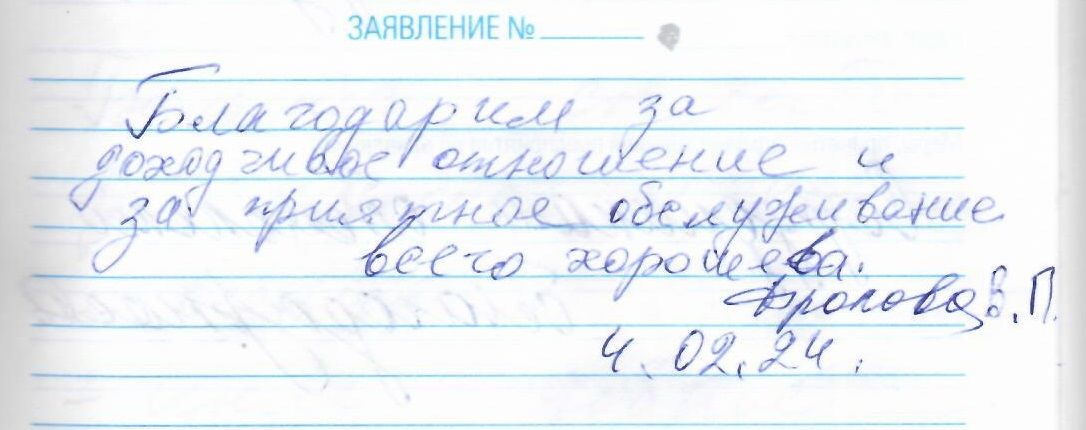 ЗАЯВЛЕНИЕ №
Благодарим за
доходчивое отношение и
за приятное обслуживание
всего хорошева.
В.П.
4.02.24.